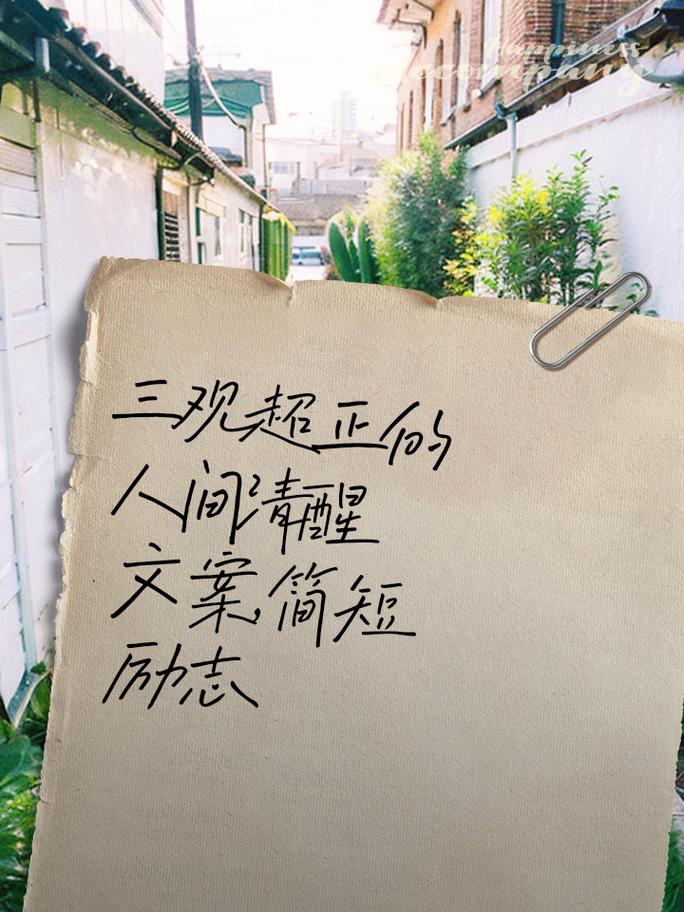 happiness
accompany
三观超正的
人间清醒
文案,简短
励志